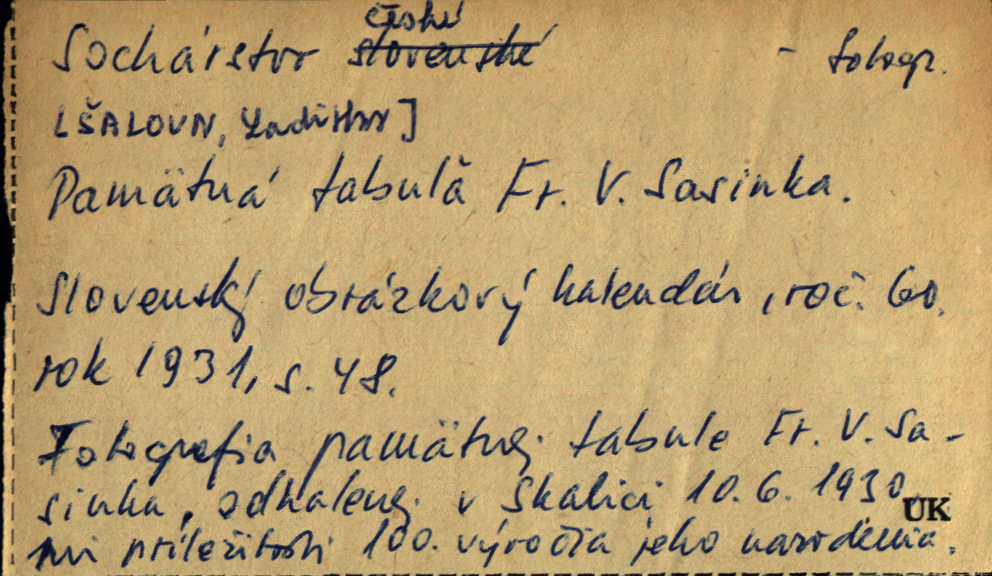 Sochárstvo české slovenské - fotogr.
[ŠALOUN, Ladislav]
Pamätná tabuľa Fr. V. Sasinka.
Slovenský obrázkový kalendár, roč. 60.
rok 1931, s. 48.
Fotografia pamätnej tabule Fr. V. Sa-
sinka, odhalenej v Skalici 10. 6. 1930
pri príležitosti 100. výročia jeho narodenia.
UK